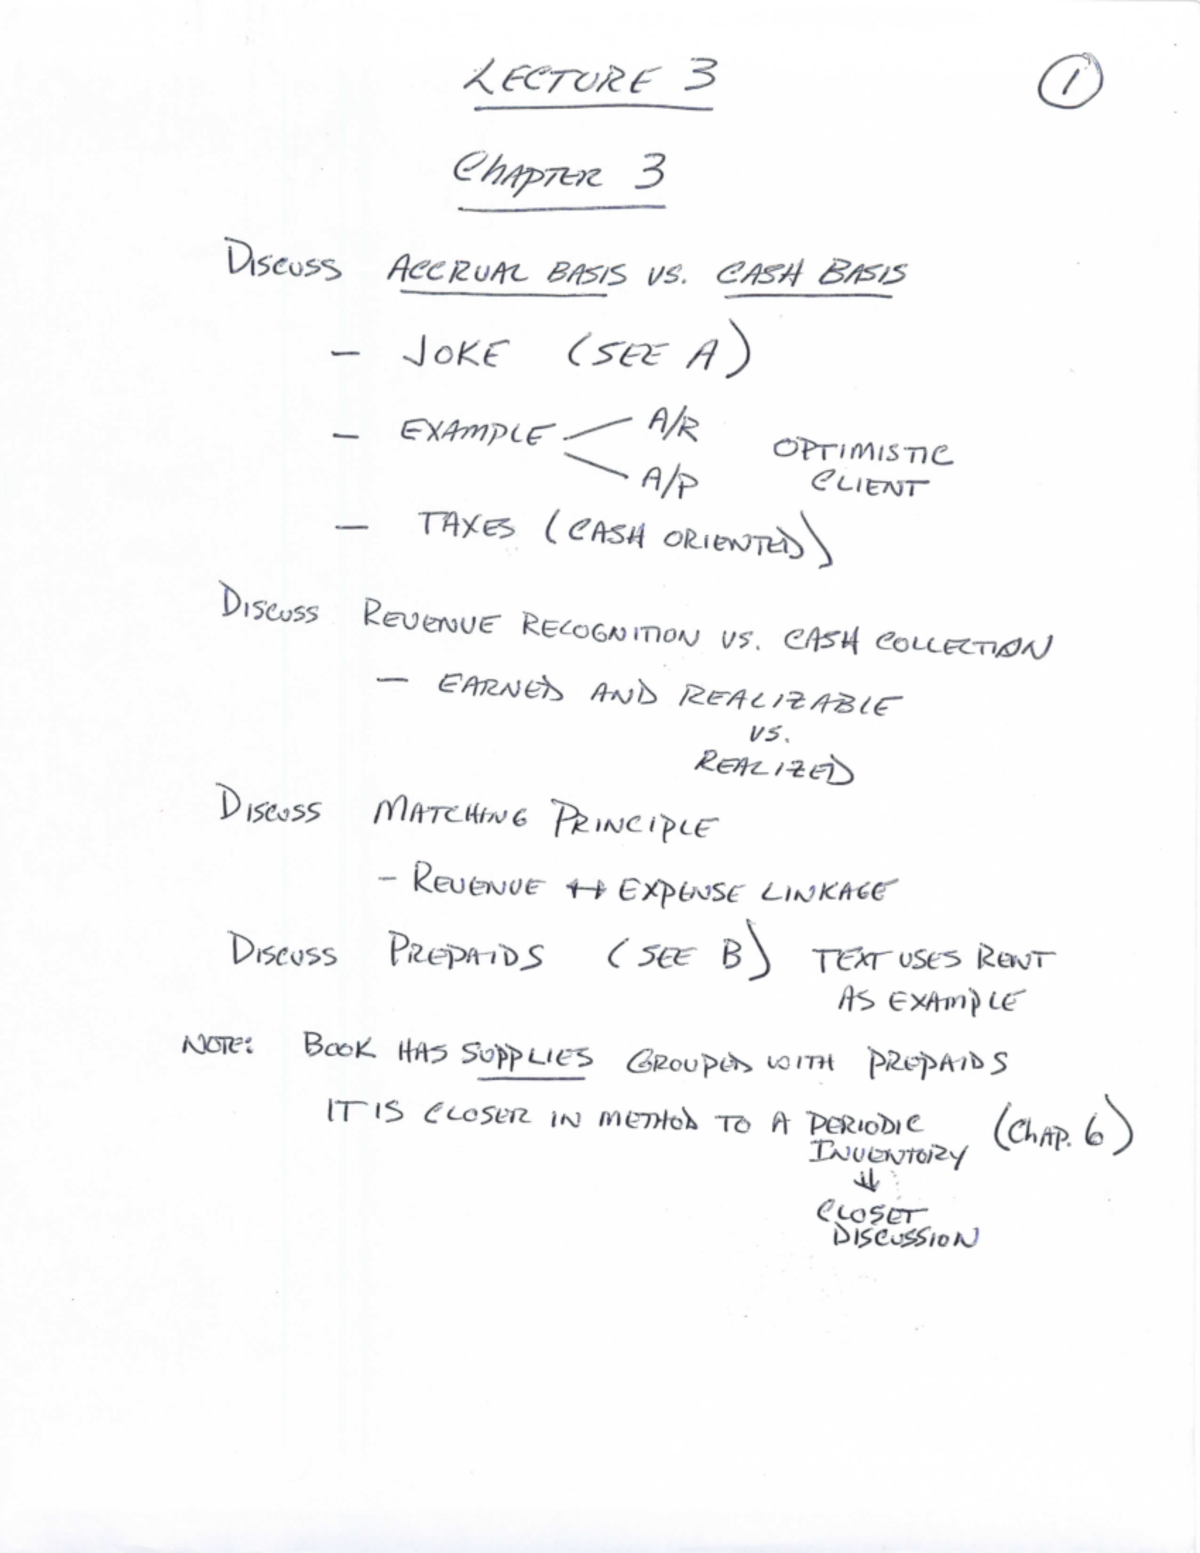 LECTURE 3
1
CHAPTER 3
DISCUSS ACCRUAL BASIS VS. CASH BASIS
- JOKE (SEE A)
- EXAMPLE A/R
A/P
OPTIMISTIC
CLIENT
- TAXES (CASH ORIENTED)
DISCUSS REVENUE RECOGNITION VS. CASH COLLECTION
- EARNED AND REALIZABLE
VS.
REALIZED
DISCUSS MATCHING PRINCIPLE
- REVENUE ↔ EXPENSE LINKAGE
DISCUSS PREPAIDS (SEE B) TEXT USES RENT
AS EXAMPLE
NOTE: BOOK HAS SUPPLIES GROUPED WITH PREPAIDS
IT IS CLOSER IN METHOD TO A PERIODIC (CHAP. 6)
INVENTORY
↓
CLOSET
DISCUSSION